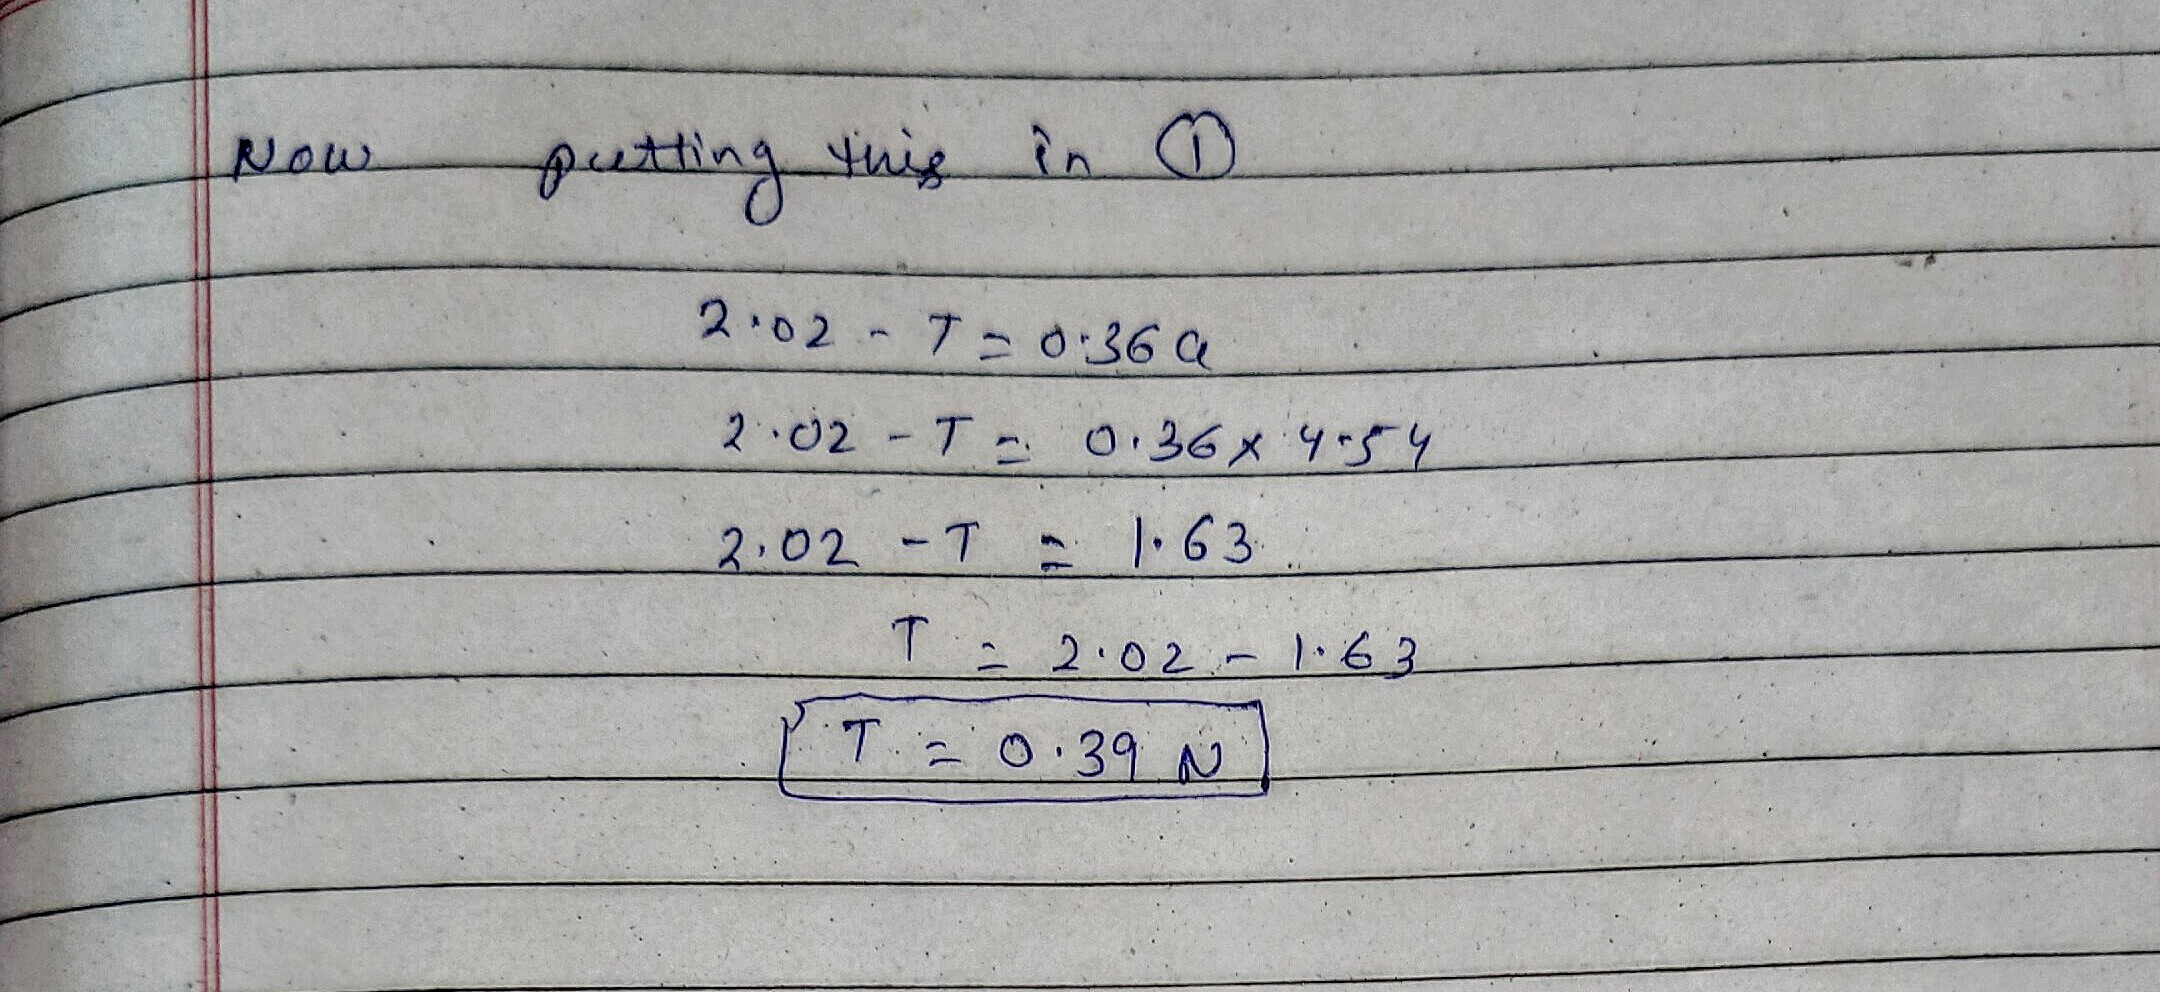 Now putting this in ①
2.02 - T = 0.36 a
2.02 - T = 0.36 x 4.54
2.02 - T = 1.63
T = 2.02 - 1.63
T = 0.39 N